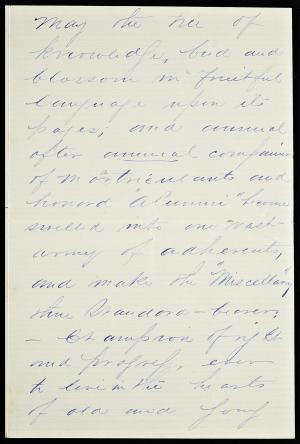 May the tree of
knowledge, bud and
blossom in fruitful
language upon its
pages; and annual
after annual companies
of matriculants and
honored "Alumni" become
swelled into one vast
army of adherents,
and make the "Miscellany"
their Standard-bearer;
- Champion of right
and progress, ever
to live in the hearts
of old and young